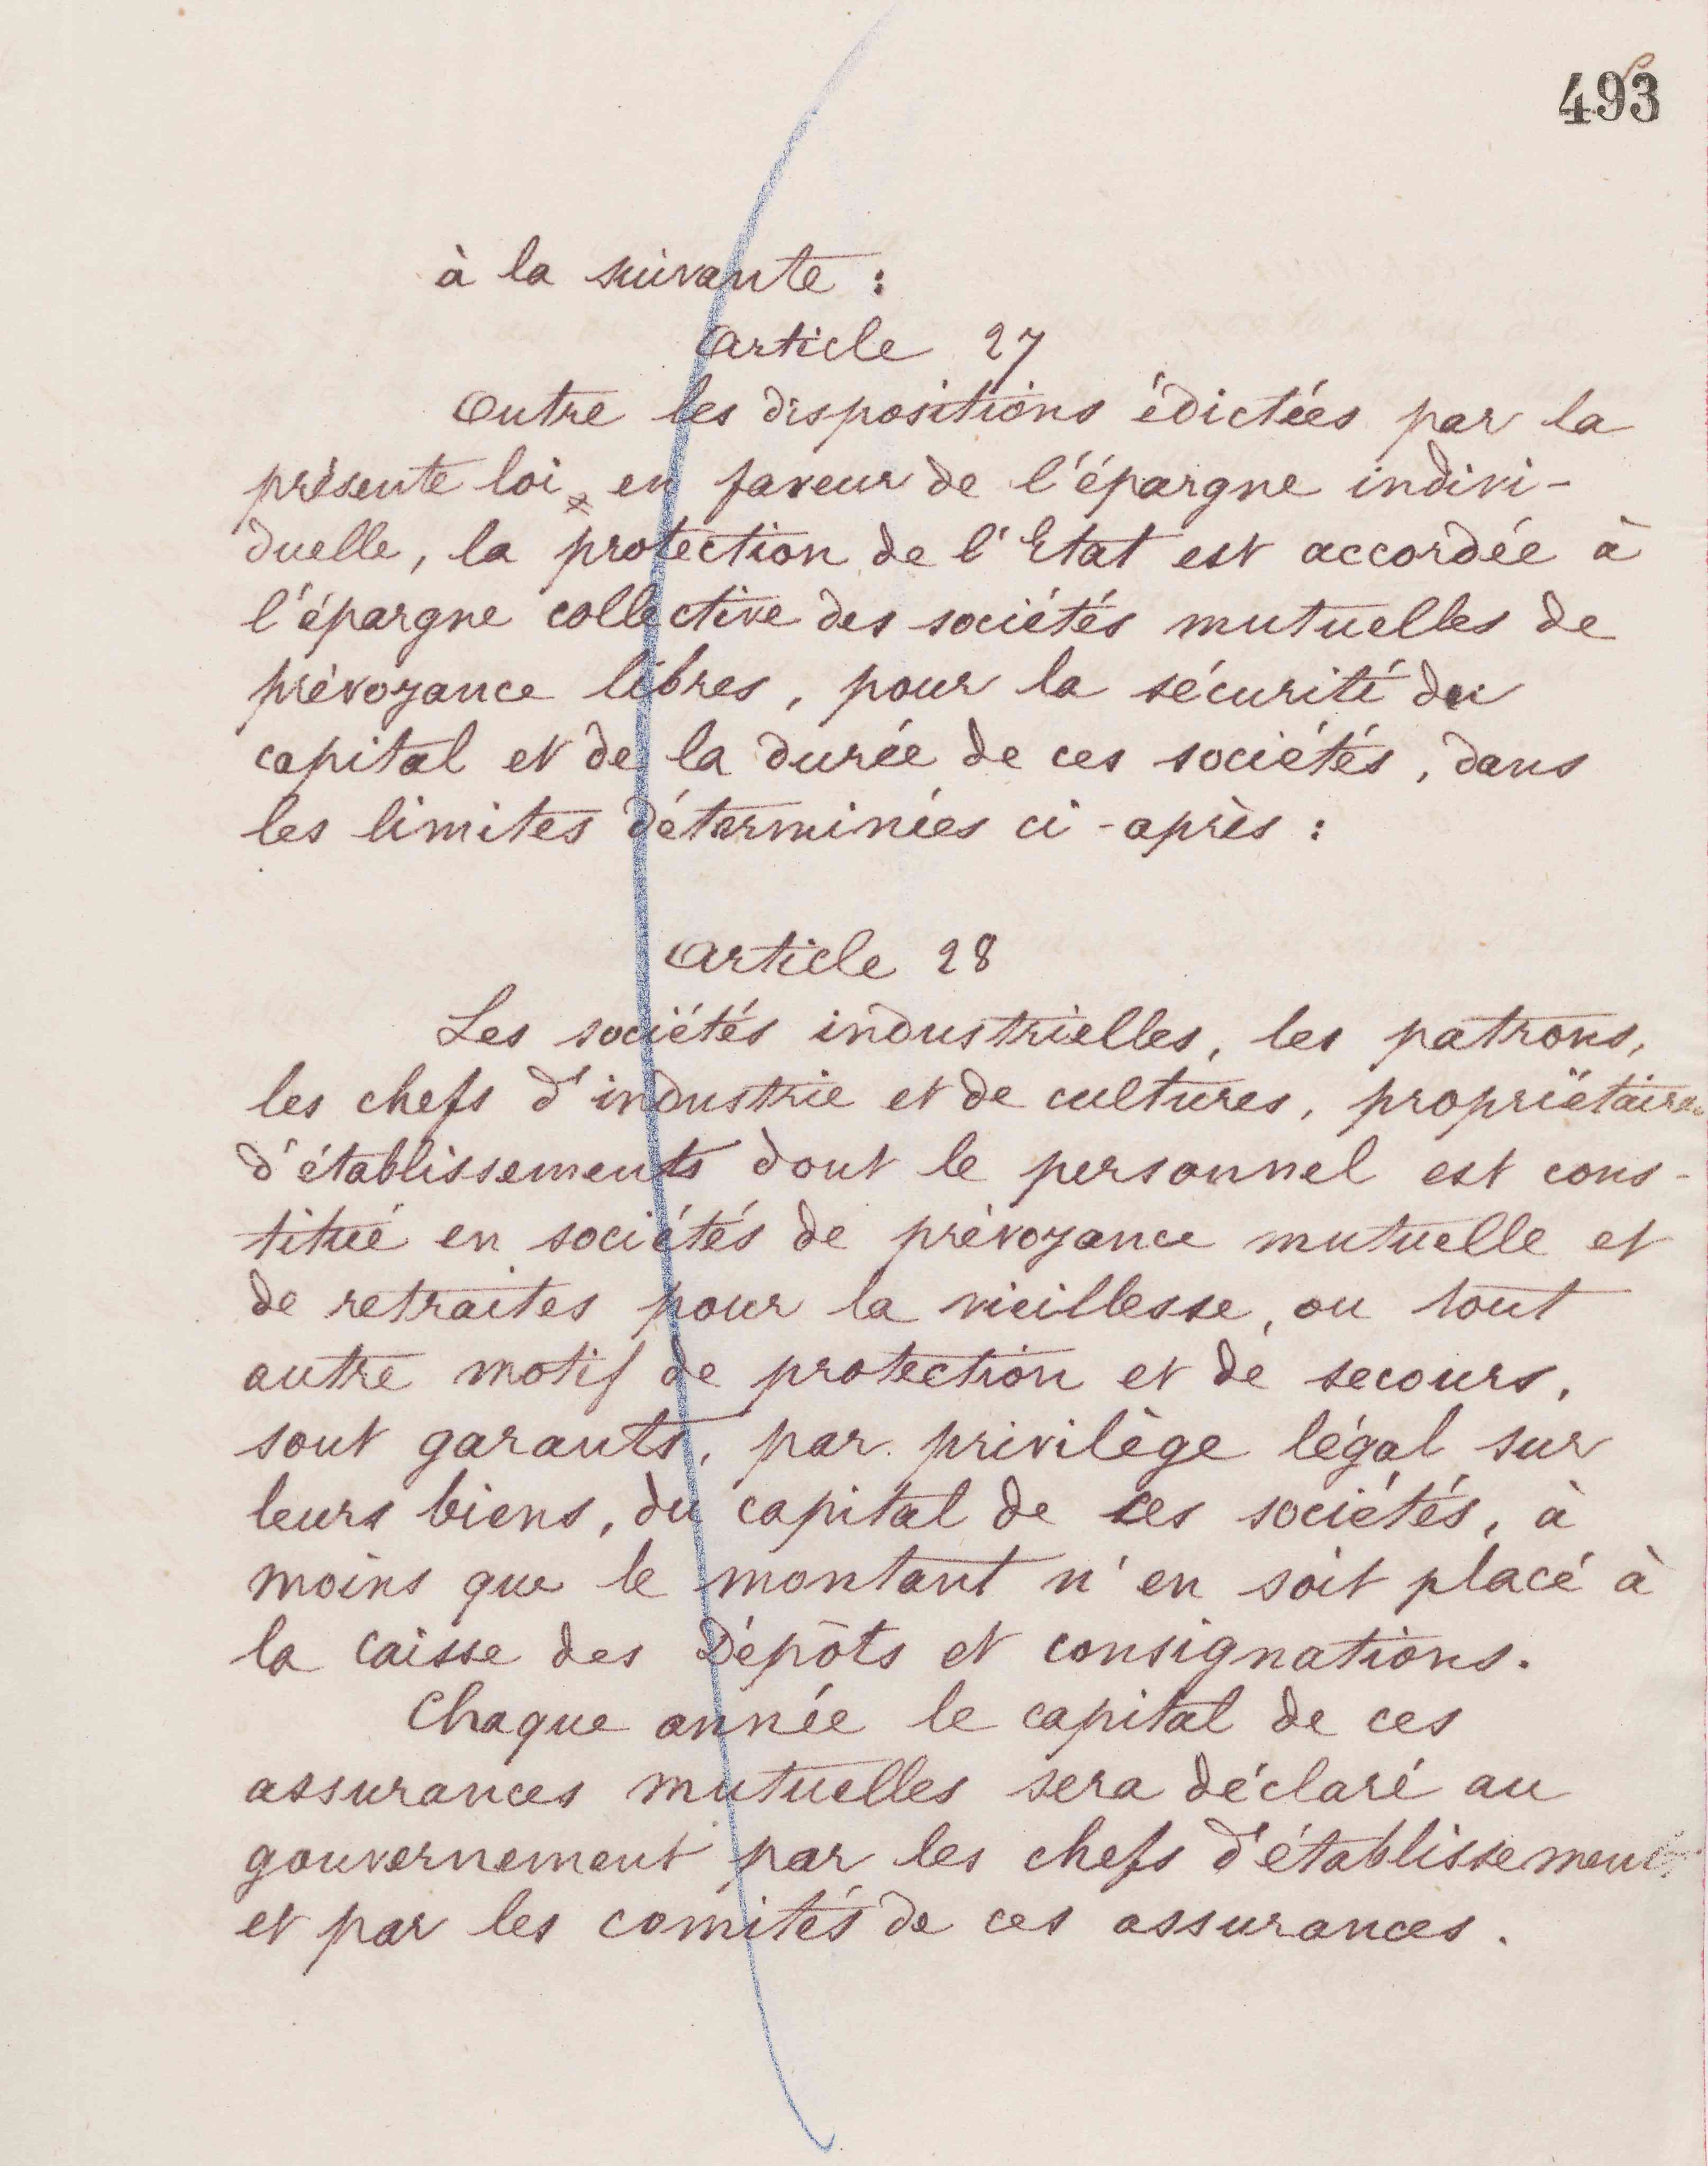 493
à la suivante :
Article 27
Outre les dispositions édictées par la
présente loi en faveur de l'épargne indivi-
duelle, la protection de l'Etat est accordée à
l'épargne collective des sociétés mutuelles de
prévoyance libres, pour la sécurité du
capital et de la durée de ces sociétés, dans
les limites déterminées ci-après :
Article 28
Les sociétés industrielles, les patrons,
les chefs d'industrie et de cultures, propriétaires
d'établissements dont le personnel est cons-
titué en sociétés de prévoyance mutuelle et
de retraites pour la vieillesse, ou tout
autre motif de protection et de secours,
sont garants, par privilège légal sur
leurs biens, du capital de ces sociétés, à
moins que le montant n'en soit placé à
la caisse des Dépôts et consignations.
Chaque année le capital de ces
assurances mutuelles sera déclaré au
gouvernement par les chefs d'établissements
et par les comités de ces assurances.